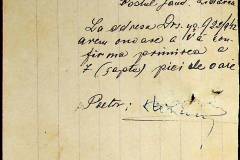 Postul Jand.
La adresa Drs. No. 922/942
avem onoare a Vă con-
firma primirea a
7 (șapte) piei de oaie
Pretor: